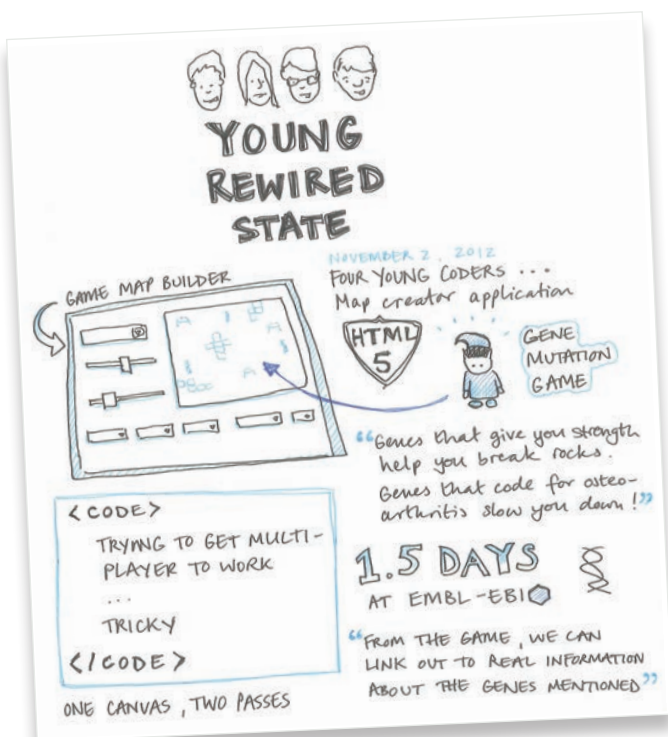 YOUNG
REWIRED
STATE
NOVEMBER 2, 2012
FOUR YOUNG CODERS ...
Map creator application
GAME MAP BUILDER
HTML
5
GENE
MUTATION
GAME
“Genes that give you strength
help you break rocks.
Genes that code for osteo-
arthritis slow you down!”
<CODE>
TRYING TO GET MULTI-
PLAYER TO WORK
...
TRICKY
</CODE>
ONE CANVAS, TWO PASSES
1.5 DAYS
AT EMBL-EBI
“FROM THE GAME, WE CAN
LINK OUT TO REAL INFORMATION
ABOUT THE GENES MENTIONED”